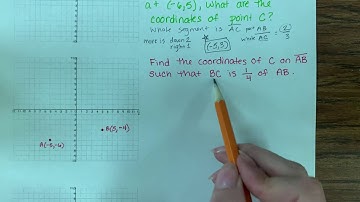 at (-6,5), What are the
coordinates of point C?
Whole segment is AC part AB = (2)
more is down 2 whole AC 3
right 1 (-5,3)
Find the coordinates of C on AB
such that BC is 1/4 of AB.
B(3,-4)
A(-5,-6)